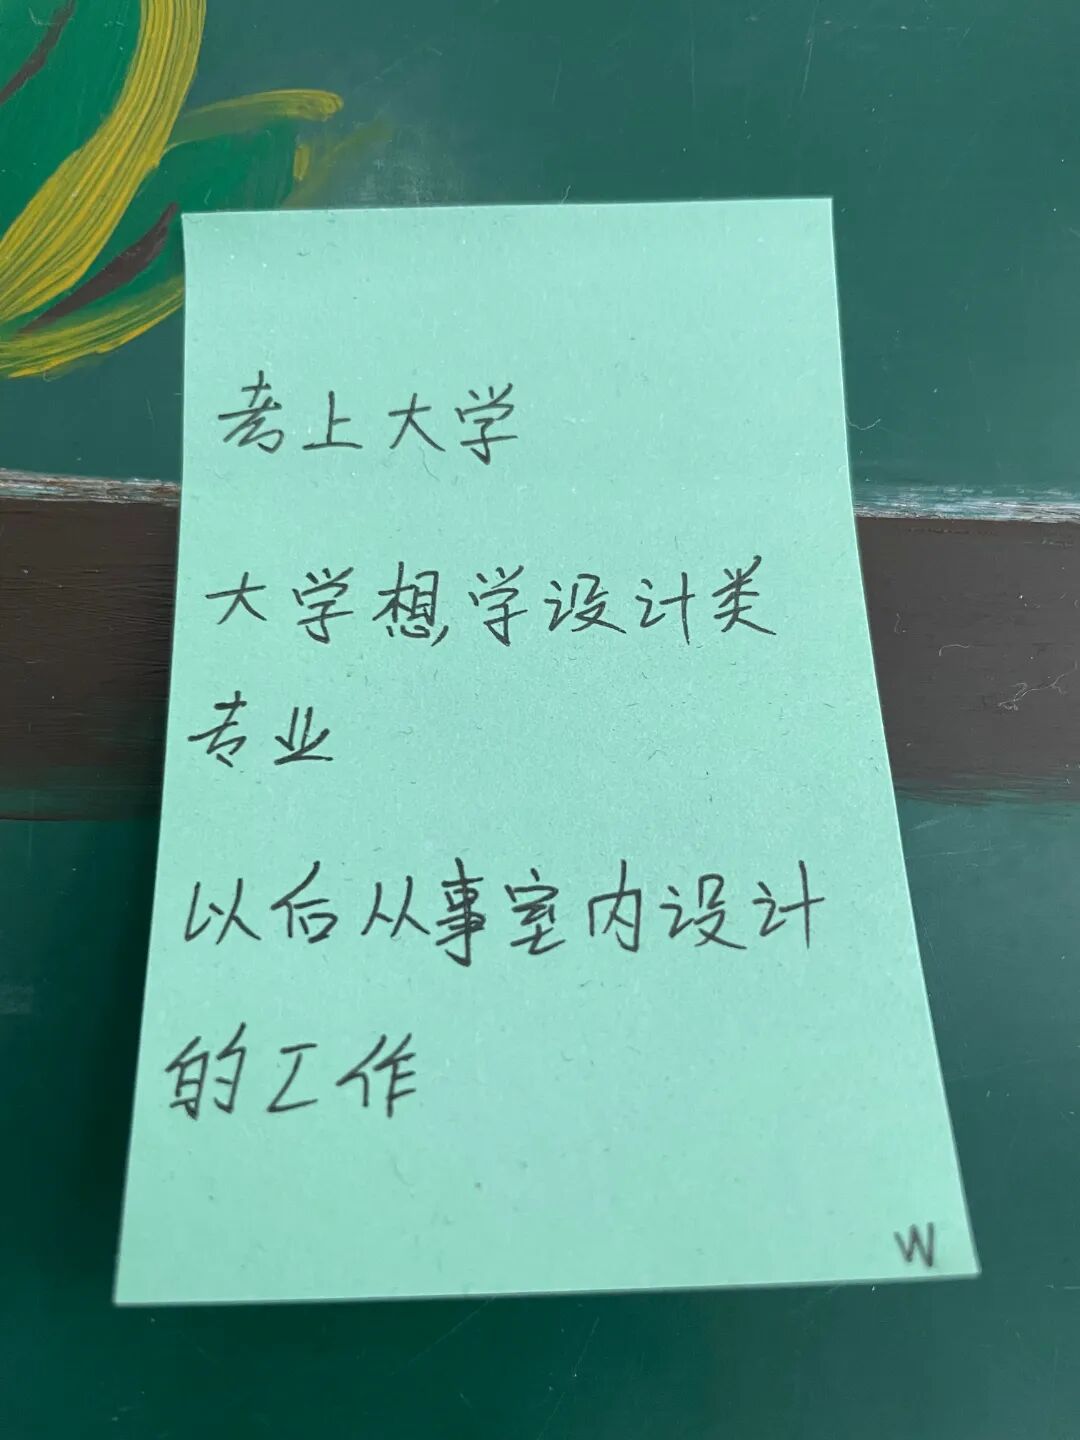 考上大学
大学想,学设计类
专业
以后从事室内设计
的工作
W